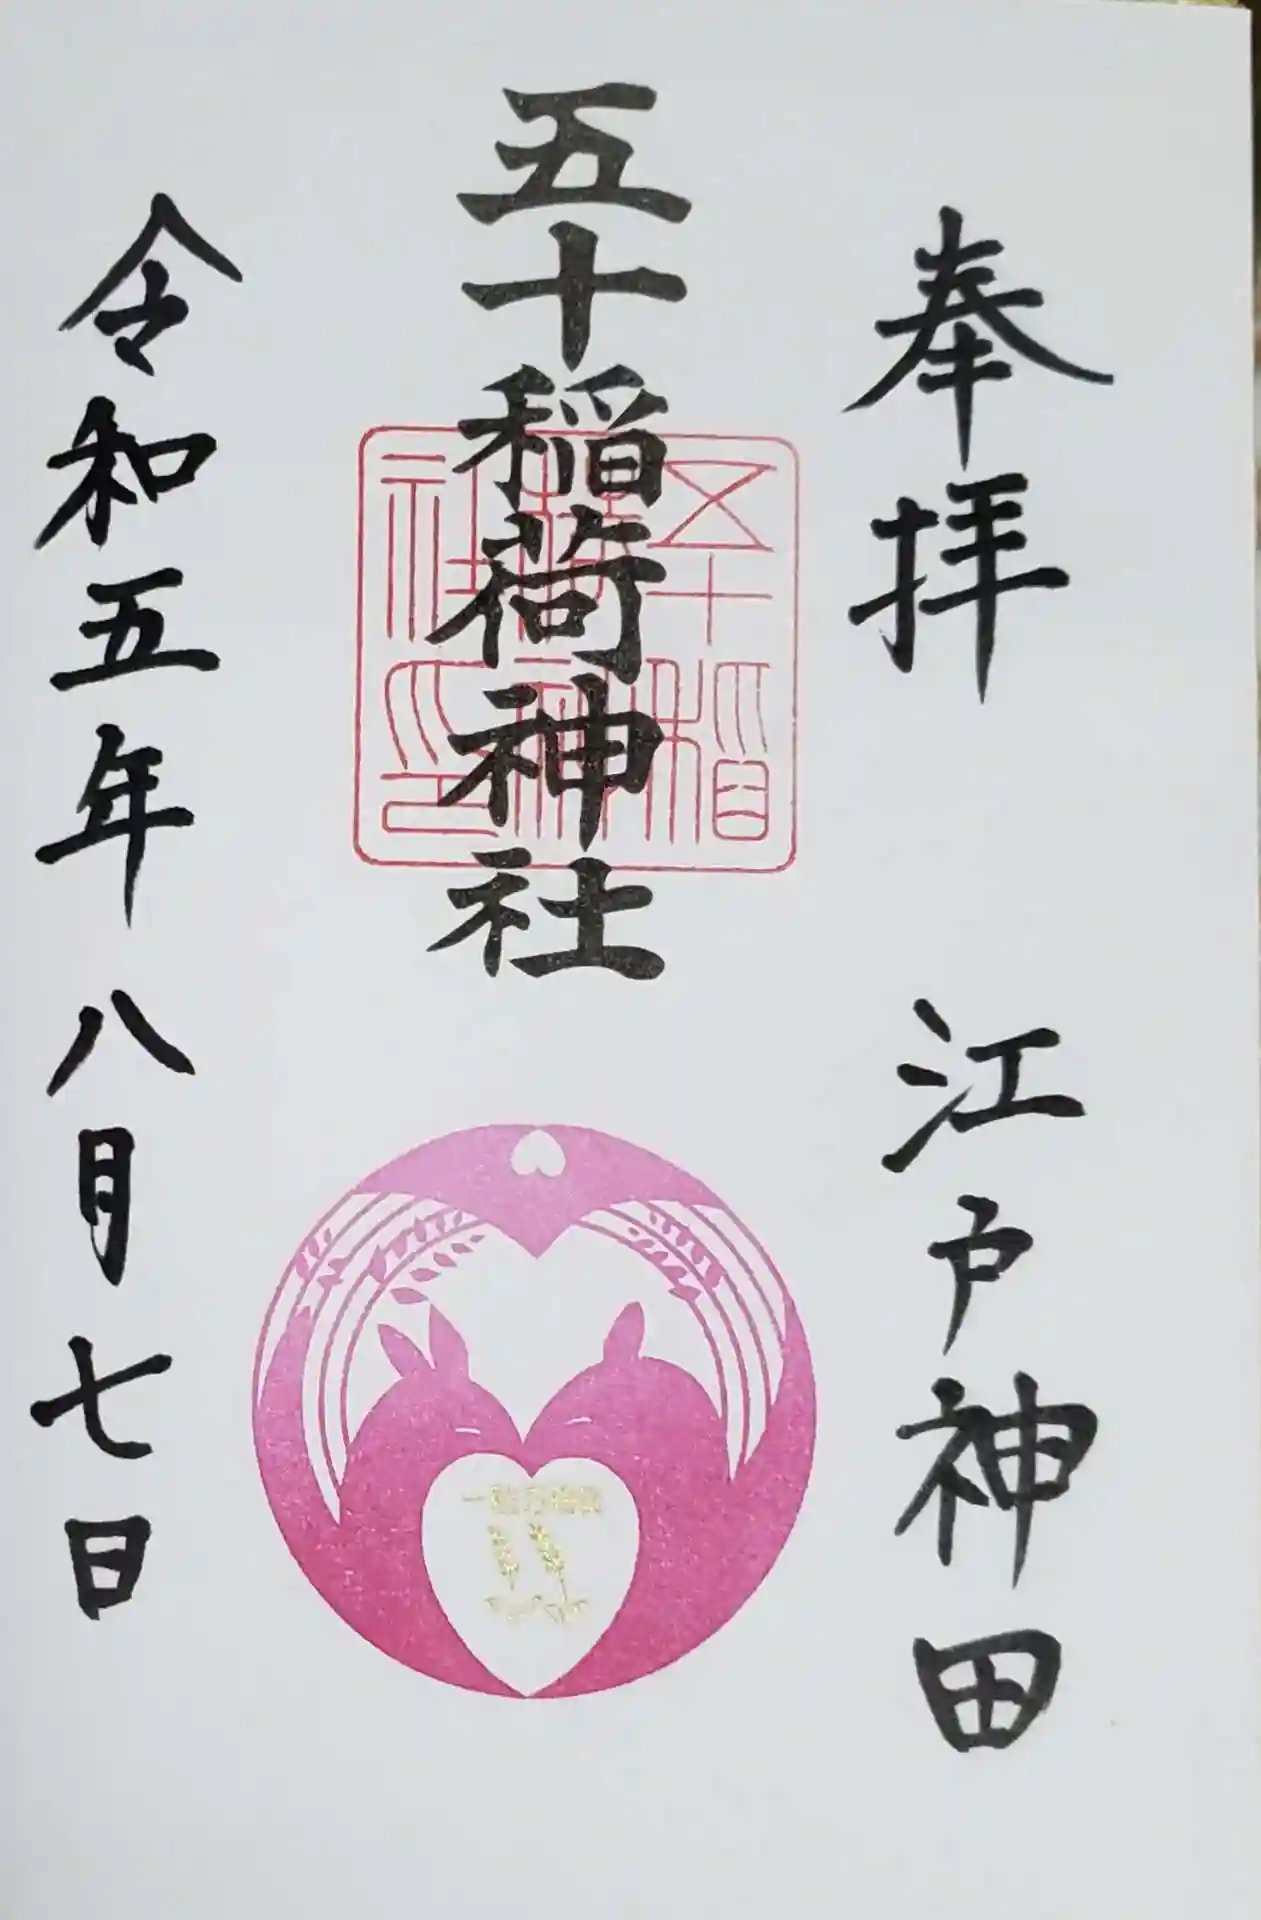 奉拝 江戸神田
五十稲荷神社
五十稲荷神社印
令和五年八月七日